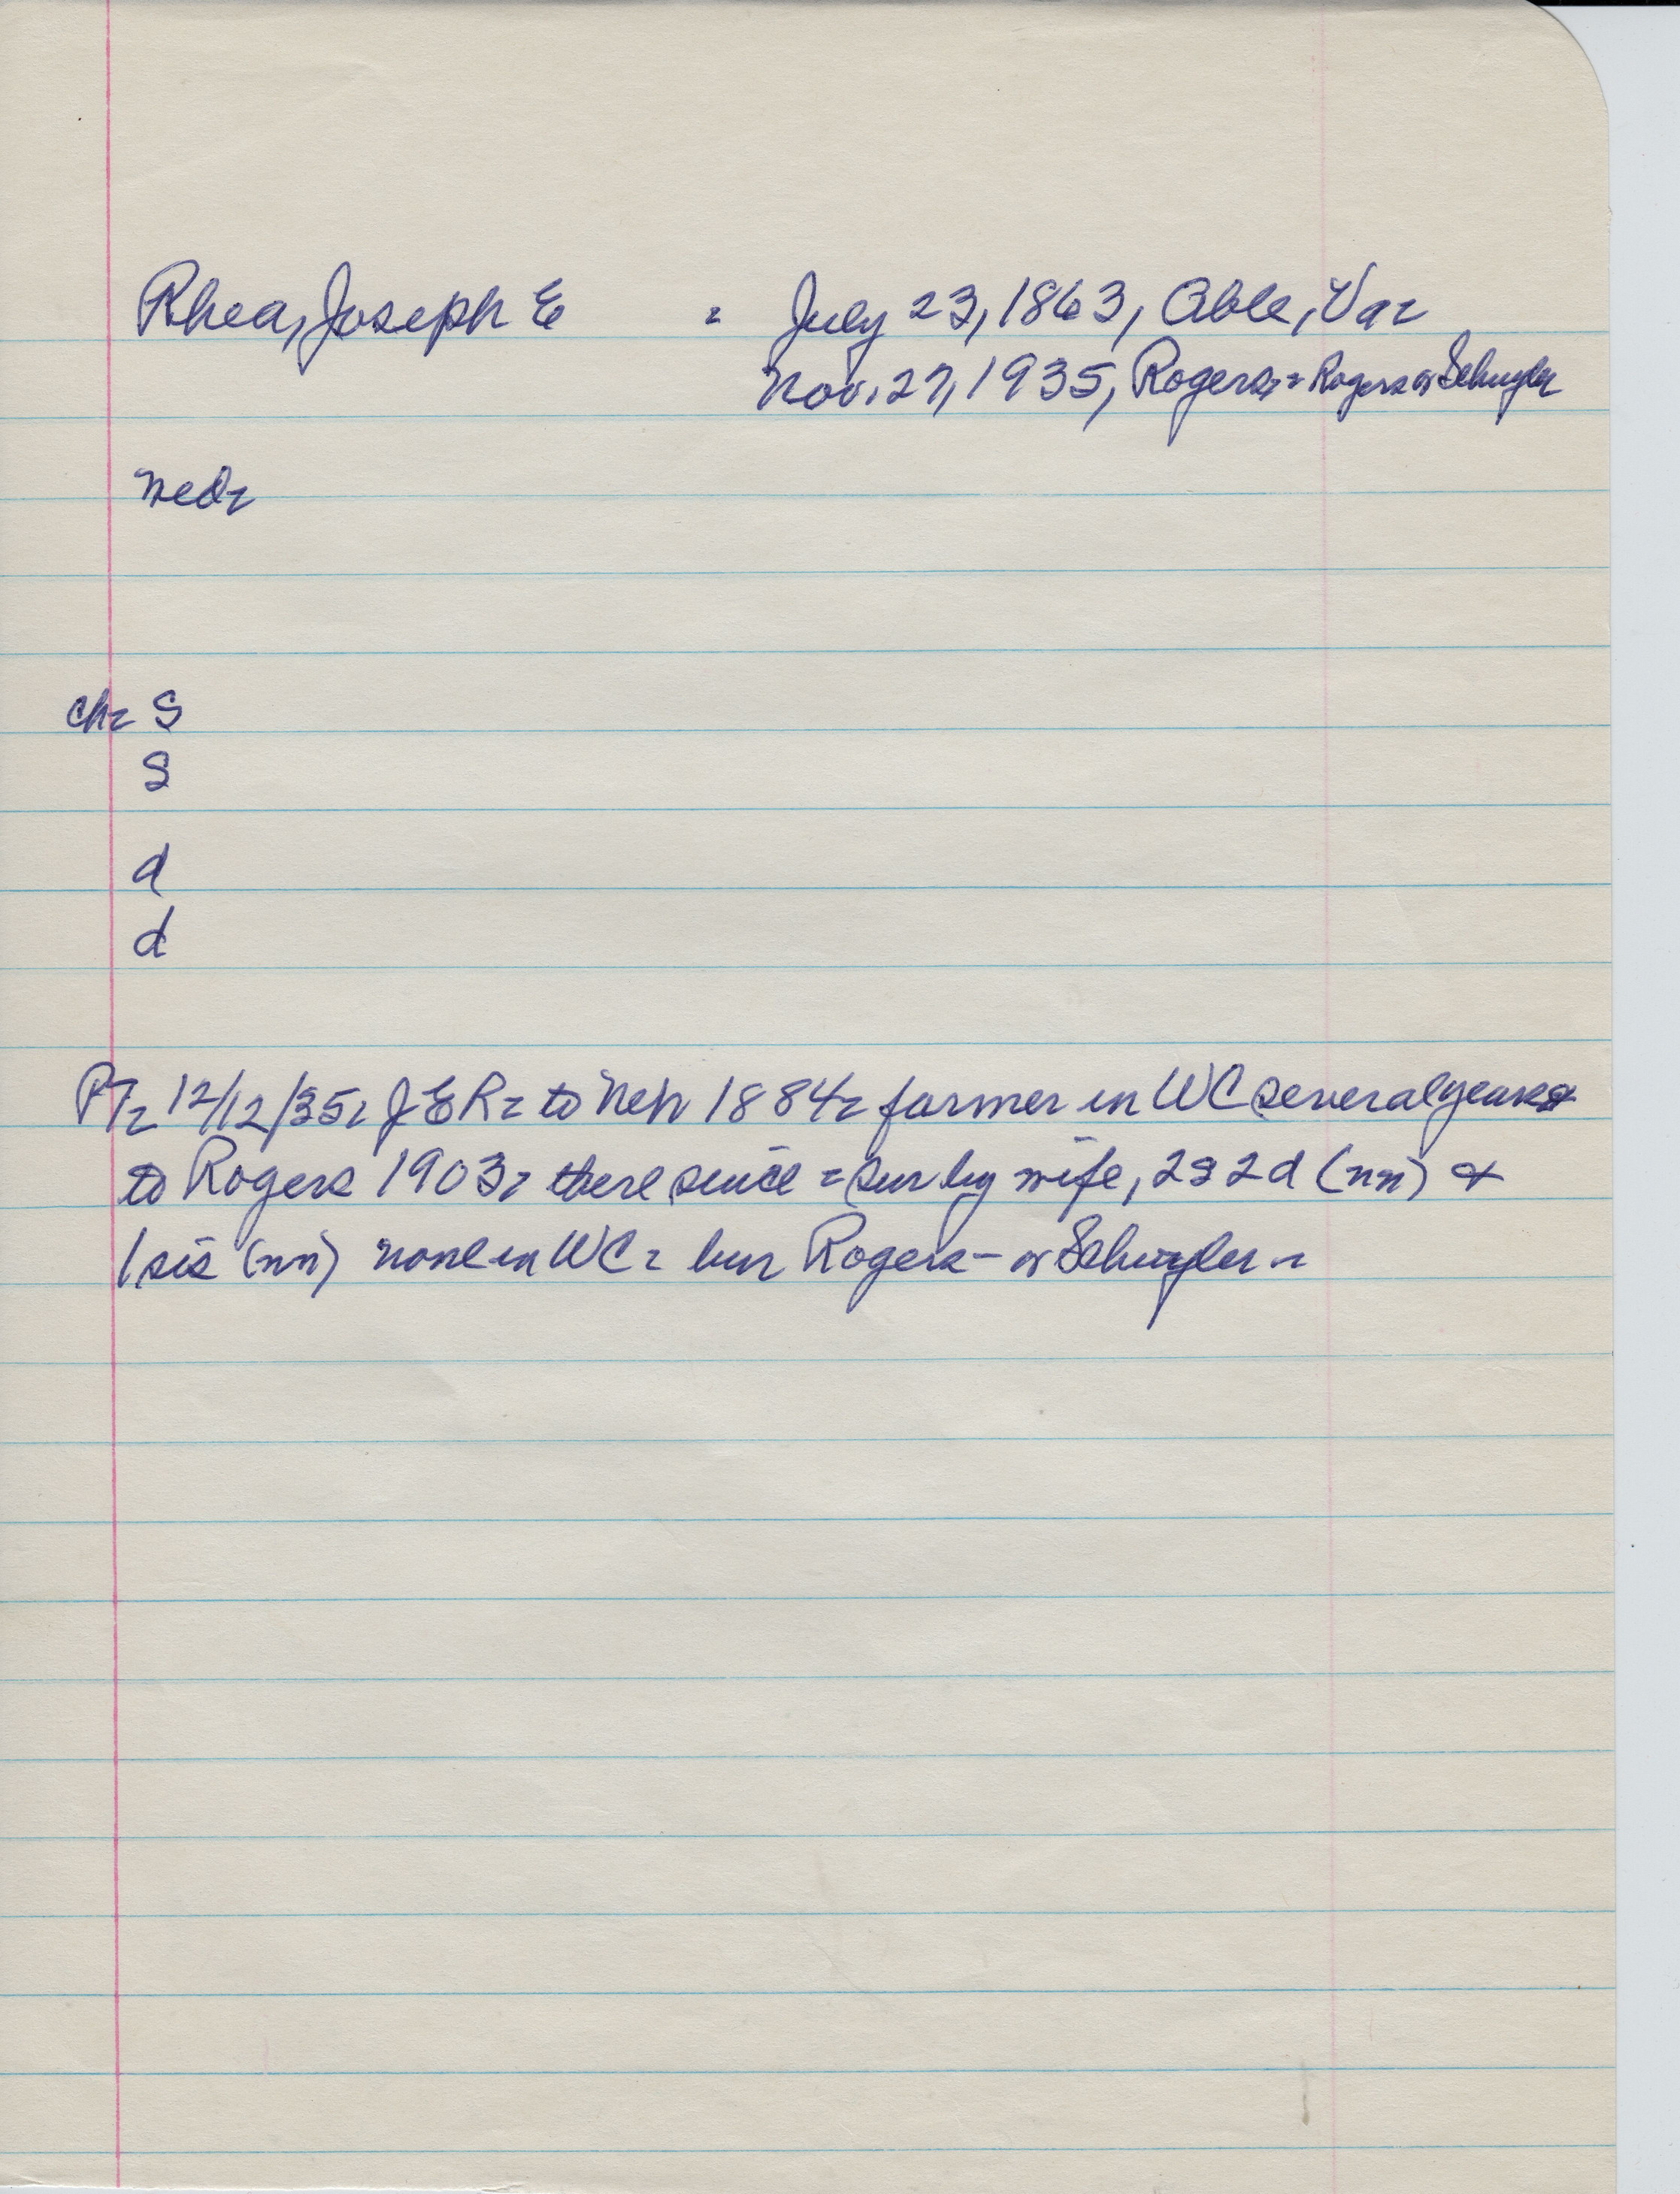 Rhea, Joseph E = July 23, 1863, Able, Va =
Nov. 27, 1935, Rogers, = Rogers or Schuyler
Wed =
ch = S
S
d
d
PT = 12/12/35 = J E R = to Neb 1884 = farmer in WC several years &
to Rogers 1903 = there since = sur by wife, 2s 2d (nn) &
1 sis (nn) none in WC = bur Rogers - or Schuyler =